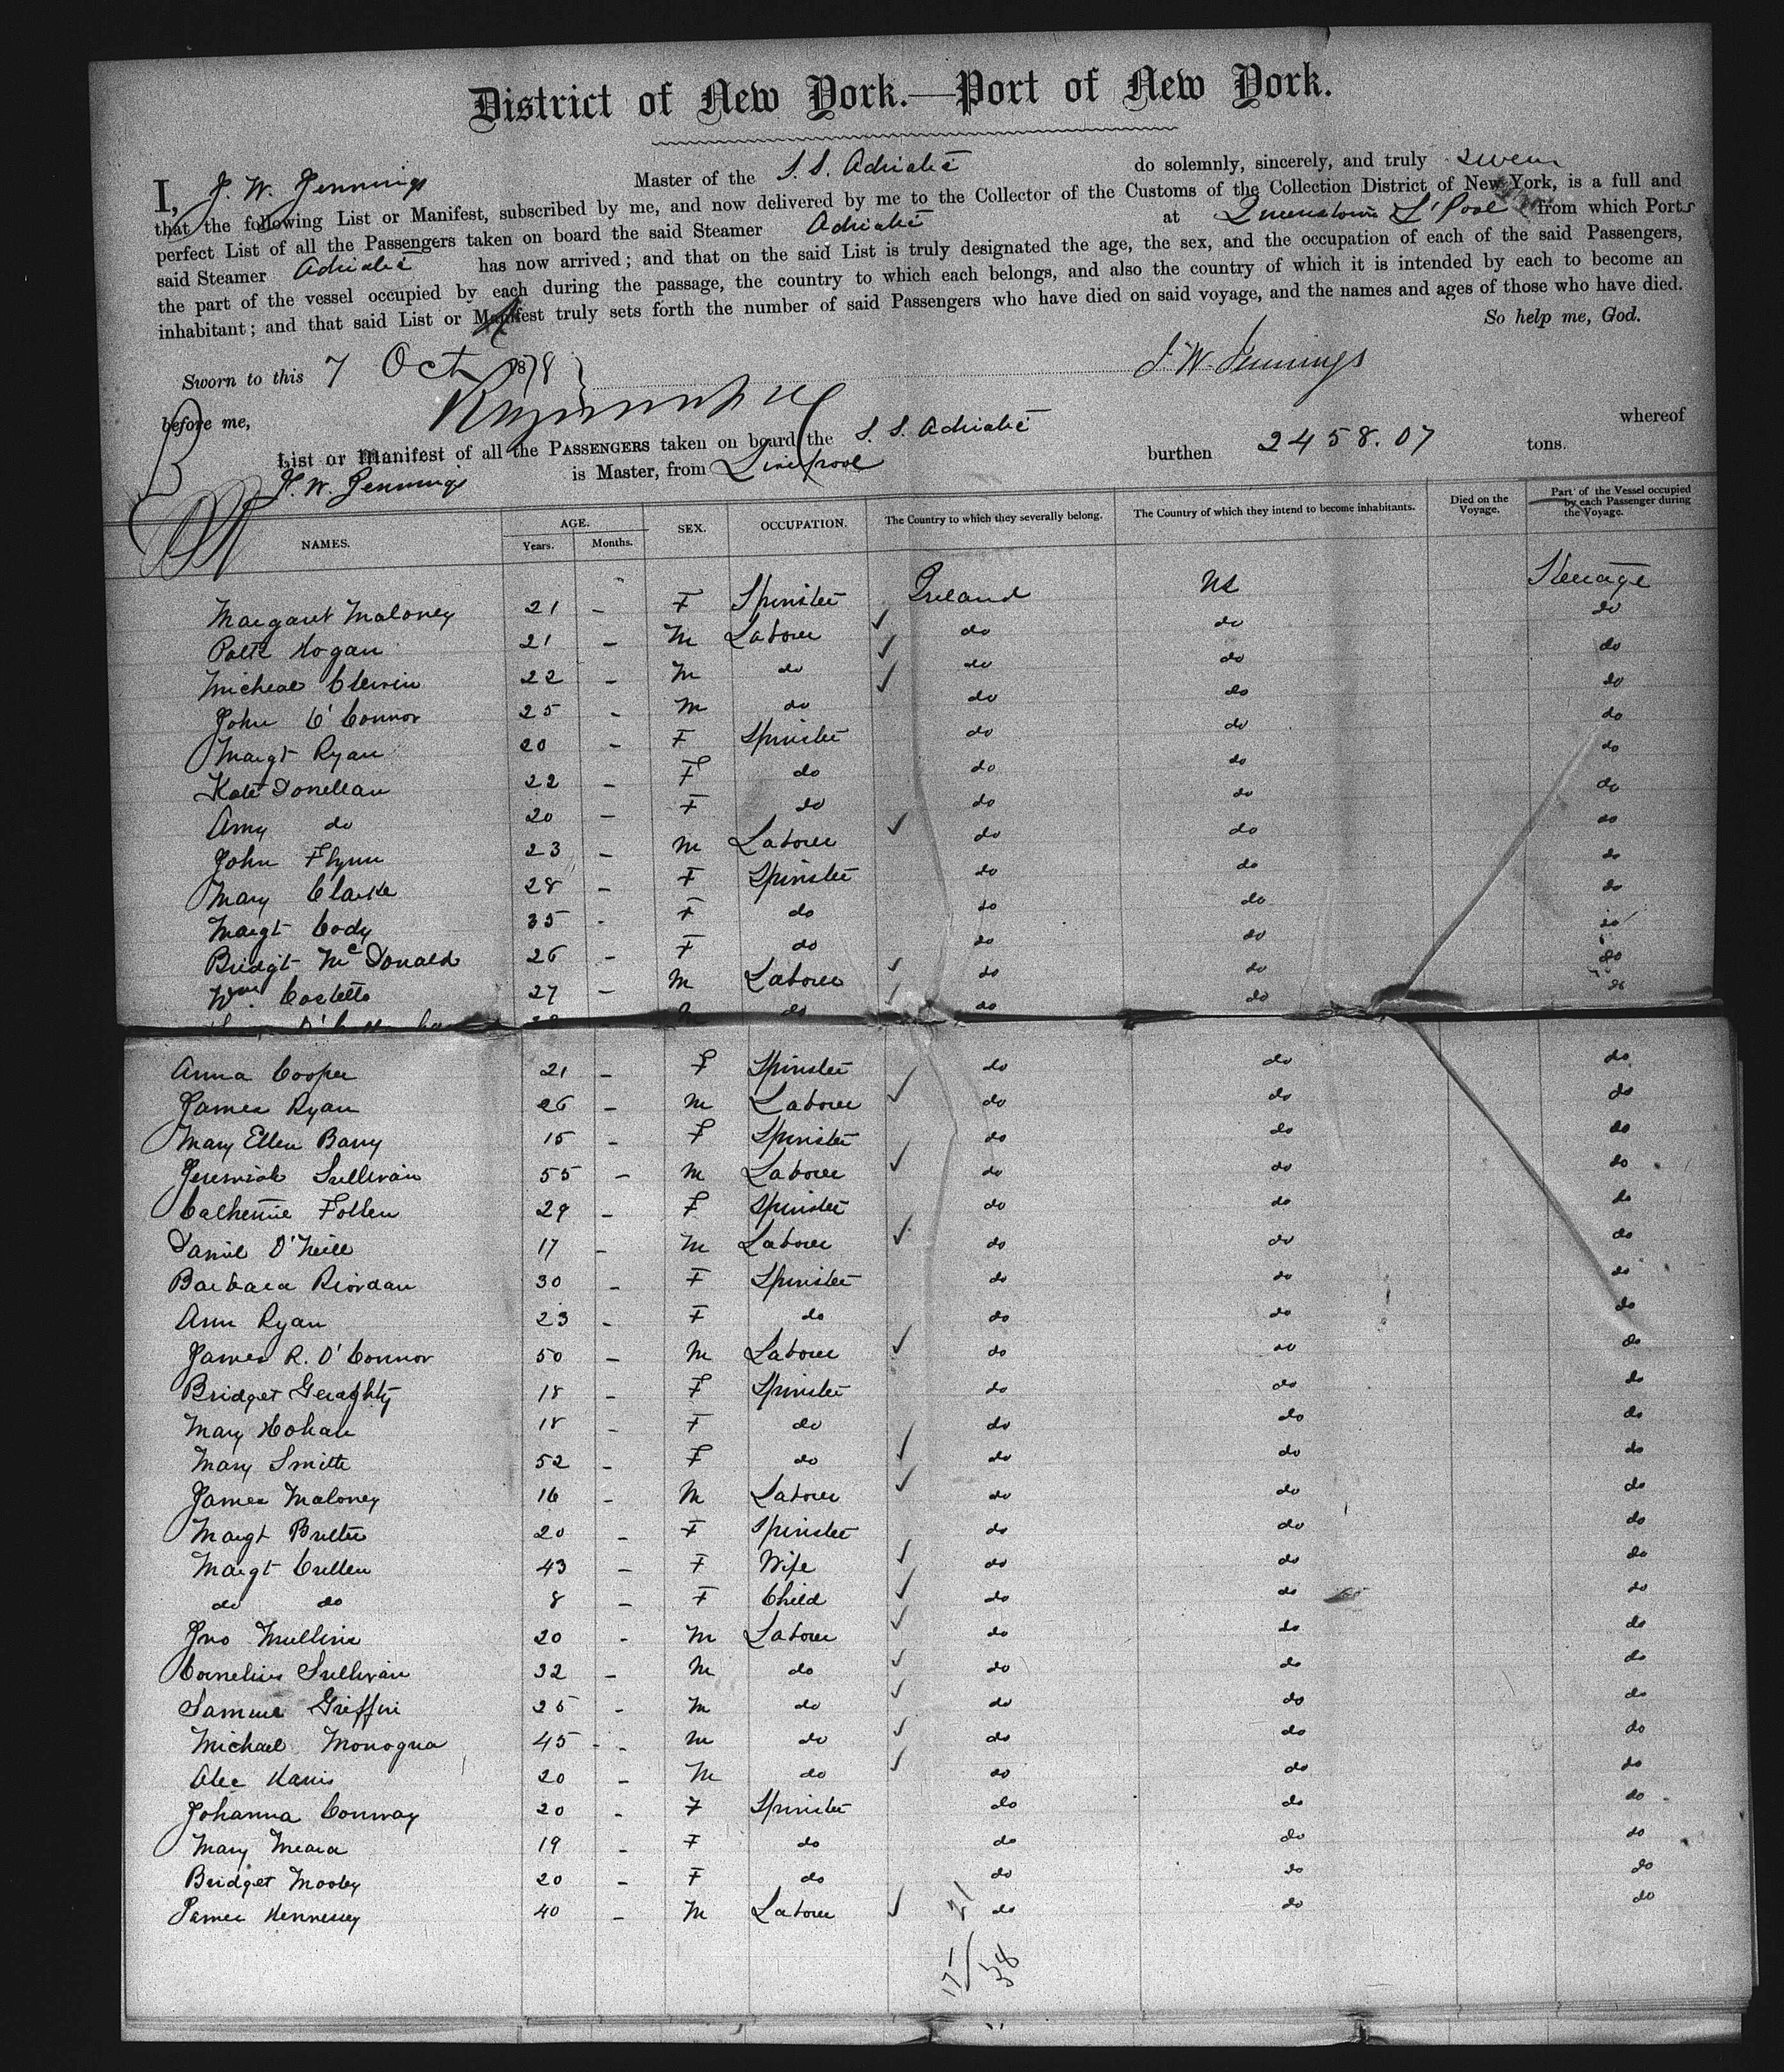 District of New York.—Port of New York.
I, J. W. Jennings Master of the S. S. Adriatic do solemnly, sincerely, and truly swear
that the following List or Manifest, subscribed by me, and now delivered by me to the Collector of the Customs of the Collection District of New York, is a full and
perfect List of all the Passengers taken on board the said Steamer Adriatic at Queenstown L'Pool from which Ports
said Steamer Adriatic has now arrived; and that on the said List is truly designated the age, the sex, and the occupation of each of the said Passengers,
the part of the vessel occupied by each during the passage, the country to which each belongs, and also the country of which it is intended by each to become an
inhabitant; and that said List or Manifest truly sets forth the number of said Passengers who have died on said voyage, and the names and ages of those who have died.
So help me, God.
Sworn to this 7 Oct 1878 J. W. Jennings
before me,
List or Manifest of all the PASSENGERS taken on board the S. S. Adriatic burthen 2458.07 tons. whereof
J. W. Jennings is Master, from Liverpool
NAMES. AGE. Years. Months. SEX. OCCUPATION. The Country to which they severally belong. The Country of which they intend to become inhabitants. Died on the Voyage. Part of the Vessel occupied by each Passenger during the Voyage.
Margaret Maloney 21 - F Spinster Ireland US Steerage
Patk Hogan 21 - M Laborer do do do
Micheal 22 - M do do do do
John O'Connor 25 - M do do do do
Margt Ryan 20 - F Spinster do do do
Kate Donellan 22 - F do do do do
Amy do 20 - F do do do do
John Flynn 23 - M Laborer do do do
Mary Clarke 28 - F Spinster do do do
Margt Cody 35 - F do do do do
Bridgt McDonald 26 - F do do do do
Wm Costello 27 - M Laborer do do do
do do do
Anna Cooper 21 - F Spinster do do do
James Ryan 26 - M Laborer do do do
Mary Ellen Barry 15 - F Spinster do do do
Jeremiah Sullivan 55 - M Laborer do do do
Catherine Follen 29 - F Spinster do do do
Daniel O'Neill 17 - M Laborer do do do
Barbara Riordan 30 - F Spinster do do do
Ann Ryan 23 - F do do do do
James R. O'Connor 50 - M Laborer do do do
Bridget Geraghty 18 - F Spinster do do do
Mary Hohan 18 - F do do do do
Mary Smith 52 - F do do do do
James Maloney 16 - M Laborer do do do
Margt Butler 20 - F Spinster do do do
Margt Cullen 43 - F Wife do do do
do do 8 - F Child do do do
Jno Mullins 20 - M Laborer do do do
Cornelius Sullivan 32 - M do do do do
Samuel Griffin 25 - M do do do do
Michael Monogua 45 - M do do do do
Alec Harris 20 - M do do do do
Johanna Conway 20 - F Spinster do do do
Mary Meara 19 - F do do do do
Bridget Mooley 20 - F do do do do
James Hennessy 40 - M Laborer do do do
21
17/38